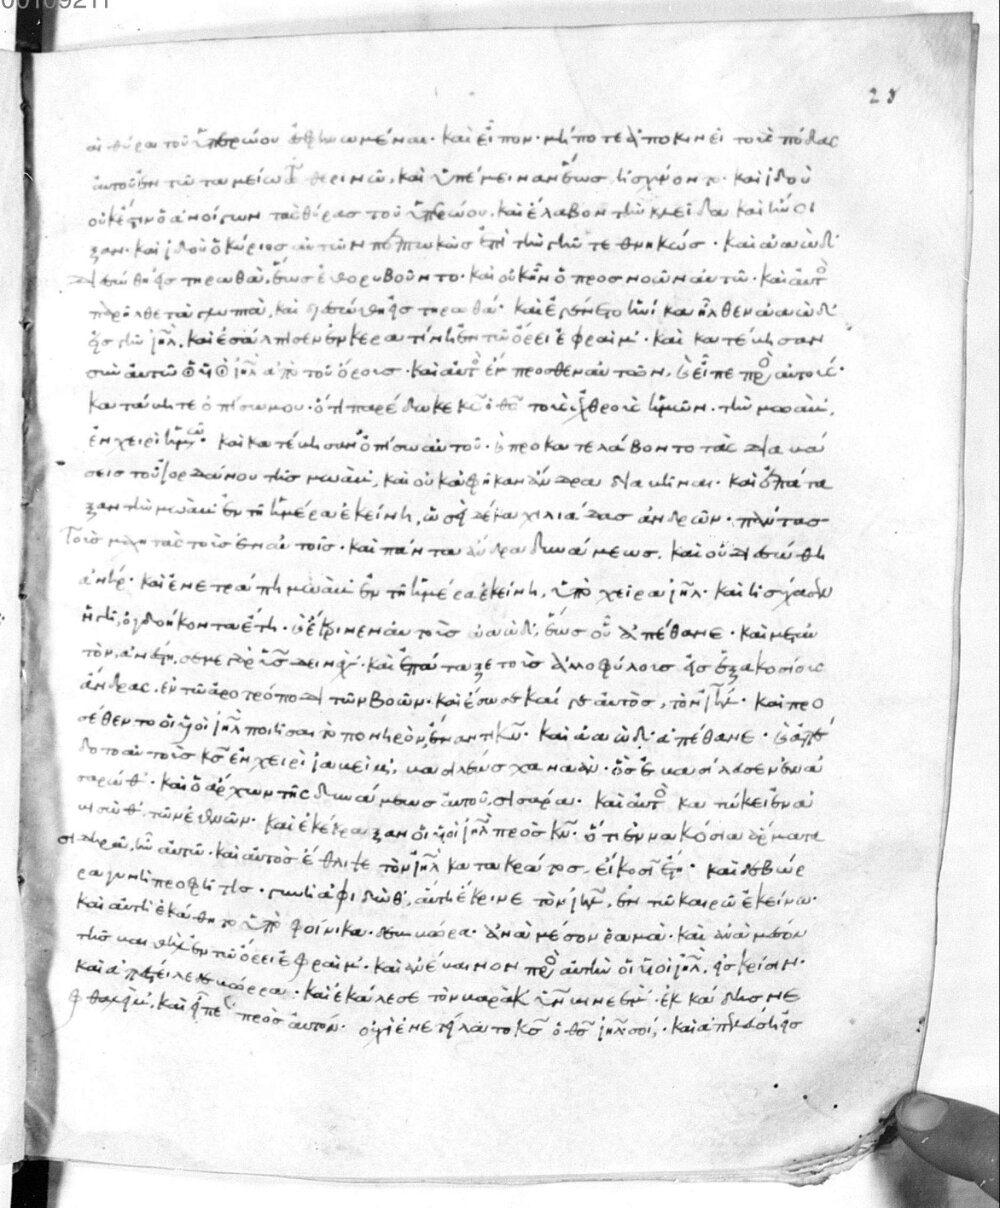 00109211
28
αἱ θύραι τοῦ ὑπερώου ἐσφηνωμέναι· καὶ εἶπον· μήποτε ἀποκινεῖ τοὺς πόδας
αὐτοῦ ἐν τῶ ταμείω τῶ θερινῶ, καὶ ὑπέμειναν ἕως ἠσχύοντο· καὶ ἰδοὺ
οὐκ ἦν ὁ ἀνοίγων τὰς θύρας τοῦ ὑπερώου, καὶ ἔλαβον τὴν κλεῖδα καὶ ἤνοι
ξαν· καὶ ἰδοὺ ὁ κύριος αὐτῶν πεπτωκὼς ἐπὶ τὴν γῆν τεθνηκώς· καὶ ἀὼδ
διεσώθη ἕως ἐθορυβοῦντο· καὶ οὐκ ἦν ὁ προσνοῶν αὐτῶ· καὶ αὐτὸ
παρῆλθε τὰ γλυπτὰ, καὶ διεσώθη εἰς καὶ ἐγένετο ἡνίκα ἦλθεν ἀὼδ
εἰς γῆν ἰηλ, καὶ ἐσάλπισεν ἐν κερατίνη ἐν τῶ ὄρει ἐφραίμ· καὶ κατέβησαν
σὺν αὐτῶ οἱ υἱοὶ ἰηλ ἀπὸ τοῦ ὄρους· καὶ αὐτὸς ἔμπροσθεν αὐτῶν, καὶ εἶπε πρὸς αὐτούς·
κατάβητε ὀπίσω μου· ὅτι παρέδωκε κς ὁ θς τοὺς ἐχθροὺς ἡμῶν· τὴν μωὰβ,
ἐν χειρὶ ἡμῶν· καὶ κατέβησαν ὀπίσω αὐτοῦ· καὶ προκατελάβοντο τὰς διαβά
σεις τοῦ ἰορδάνου τῆς μωὰβ, καὶ οὐκ ἀφῆκαν ἄνδρα διαβῆναι· καὶ ἐπάτα
ξαν τὴν μωὰβ ἐν τῆ ἡμέρα ἐκείνη, ὡσεὶ δέκα χιλιάδας ἀνδρῶν· πάντας
τοὺς μαχητὰς τοὺς ἐν αὐτοῖς· καὶ πάντα ἄνδρα δυνάμεως, καὶ οὐ διεσώθη
ἀνήρ· καὶ ἐνετράπη μωὰβ ἐν τῆ ἡμέρα ἐκείνη, ὑπὸ χεῖρα ἰηλ· καὶ ἡσύχασεν
ἡ γῆ, ὀγδοήκοντα ἔτη· καὶ ἔκρινεν αὐτοὺς ἀὼδ, ἕως οὗ ἀπέθανε· καὶ μετ
ἀνέστη καὶ ἐπάταξε τοὺς ἀλλοφύλους εἰς ἑξακοσίους
ἄνδρας, ἐν τῶ ἀροτρόποδι τῶν βοῶν· καὶ ἔσωσε καί γε αὐτὸς, τὸν ἰηλ· καὶ προ
σέθεντο οἱ υἱοὶ ἰηλ ποιῆσαι τὸ πονηρὸν, ἔναντι κυ· καὶ ἀὼδ ἀπέθανε· καὶ ἀπέ
δοτο αὐτοὺς κς ἐν χειρὶ ἰαβεὶμ, βασιλέως χαναὰν· ὃς ἐβασίλευσεν ἐν ἀ
σαρώθ· καὶ ὁ ἄρχων τῆς δυνάμεως αὐτοῦ, σισάρα· καὶ αὐτὸ κατώκει ἐν ἀ
τῶν ἐθνῶν· καὶ ἐκέκραξαν οἱ υἱοὶ ἰηλ πρὸς κν· ὅτι ἐννακόσια ἅρματα
σιδηρᾶ, ἦν αὐτῶ· καὶ αὐτὸς ἔθλιψε τὸν ἰηλ κατὰ κράτος, εἴκοσι ἔτη· καὶ δεβώρ
ρα γυνὴ προφῆτις· γυνὴ ἀφιδὼθ, αὕτη ἔκρινε τὸν ἰηλ, ἐν τῶ καιρῶ ἐκείνω·
καὶ αὐτὴ ἐκάθητο ὑπὸ φοίνικα· ἀνὰ μέσον ῥαμὰ· καὶ ἀνὰ μέσον
τῆς βαιθὴλ ἐν τῶ ὄρει ἐφραίμ· καὶ ἀνέβαινον πρὸς αὐτὴν οἱ υἱοὶ ἰηλ, εἰς κρίσιν·
καὶ ἀπέστειλε καὶ ἐκάλεσε τὸν βαρὰκ υἱὸν ἐκ κάδης νε
φθαλὶμ, καὶ εἶπε πρὸς αὐτόν· οὐχὶ ἐνετείλατο κς ὁ θς ἰηλ σοί,· καὶ ἀπελεύση εἰς